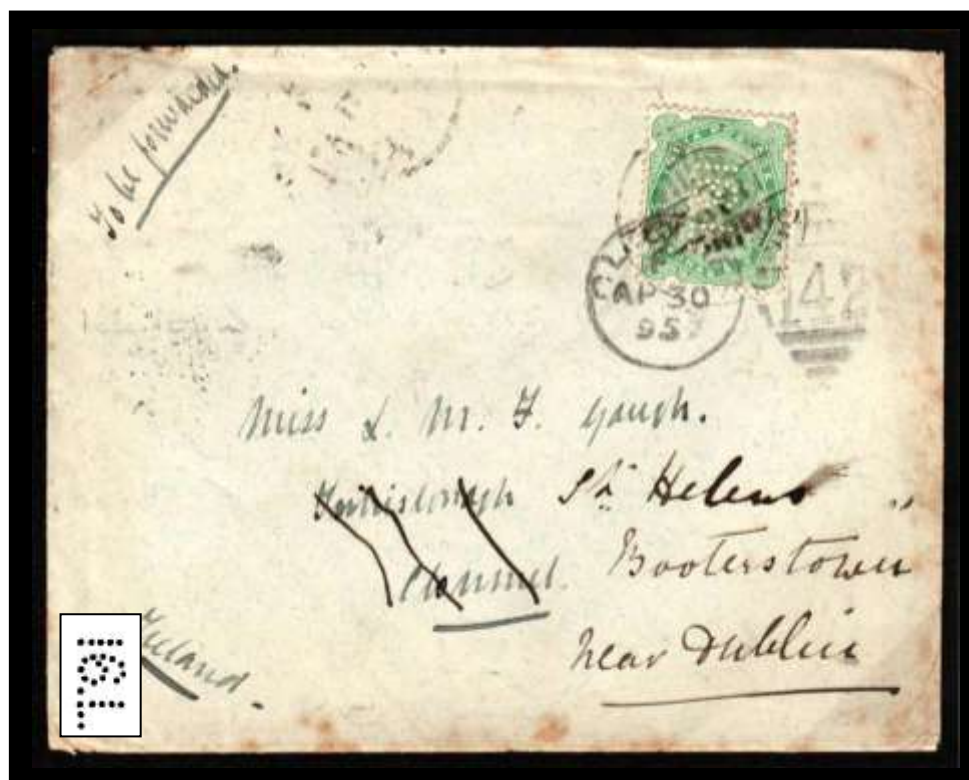 To be forwarded.
CL
AP 30
95
42
Miss L. M. F. Gough.
St Helens
Clonmel. Booterstown
near Dublin
Ireland.